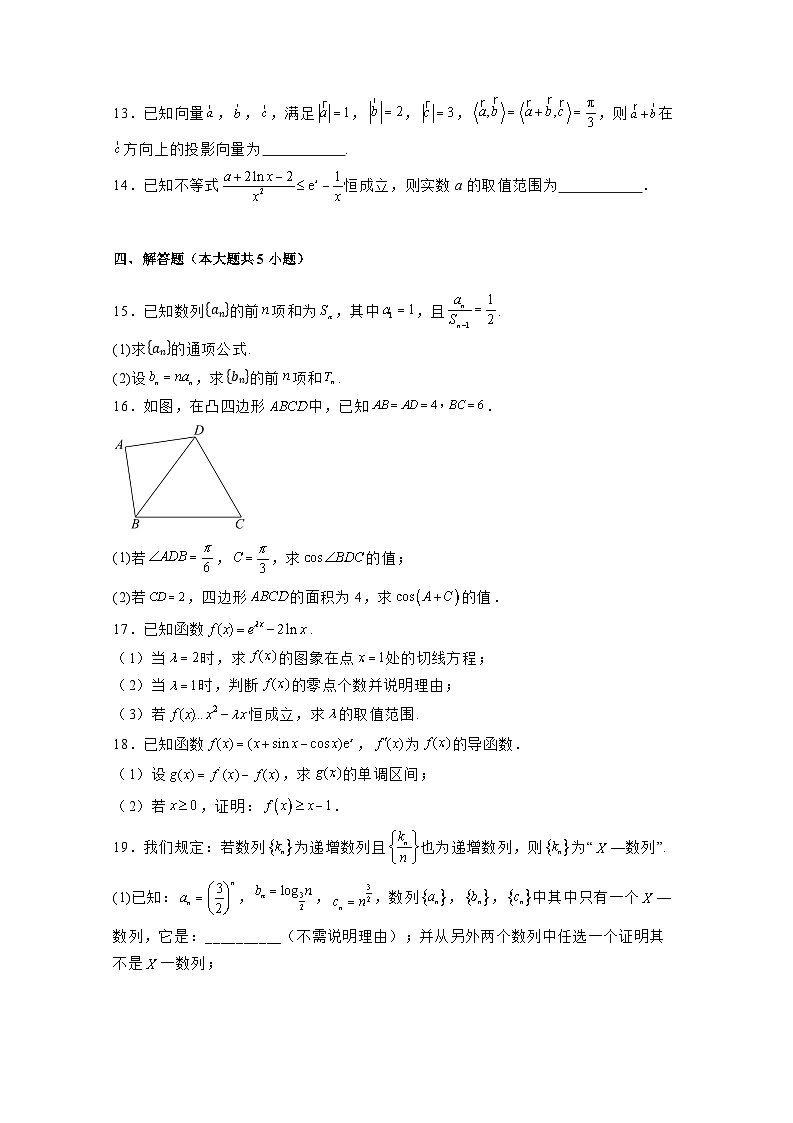 13．已知向量a，b，c，满足|a|=1，|b|=2，|c|=3，⟨a,b⟩=⟨a+b,c⟩=π/3，则a+b在
c方向上的投影向量为___________.
14．已知不等式(a+2ln x−2)/x²≤eˣ−1/x恒成立，则实数a的取值范围为___________．
四、解答题（本大题共5小题）
15．已知数列{aₙ}的前n项和为Sₙ，其中a₁=1，且aₙ/Sₙ₋₁=1/2.
(1)求{aₙ}的通项公式.
(2)设bₙ=naₙ，求{bₙ}的前n项和Tₙ.
16．如图，在凸四边形ABCD中，已知AB=AD=4，BC=6．
D
A
B
C
(1)若∠ADB=π/6，C=π/3，求cos∠BDC的值；
(2)若CD=2，四边形ABCD的面积为4，求cos(A+C)的值．
17．已知函数f(x)=e^{λx}−2ln x．
（1）当λ=2时，求f(x)的图象在点x=1处的切线方程；
（2）当λ=1时，判断f(x)的零点个数并说明理由；
（3）若f(x)…x²−λx恒成立，求λ的取值范围.
18．已知函数f(x)=(x+sin x−cos x)eˣ，f′(x)为f(x)的导函数．
（1）设g(x)=f(x)−f(x)，求g(x)的单调区间；
（2）若x≥0，证明：f(x)≥x−1．
19．我们规定：若数列{kₙ}为递增数列且{kₙ/n}也为递增数列，则{kₙ}为“X—数列”.
(1)已知：aₙ=(3/2)ⁿ，bₙ=log_{3/2}n，cₙ=n^{3/2}，数列{aₙ}，{bₙ}，{cₙ}中其中只有一个X—
数列，它是：__________（不需说明理由）；并从另外两个数列中任选一个证明其
不是X一数列；